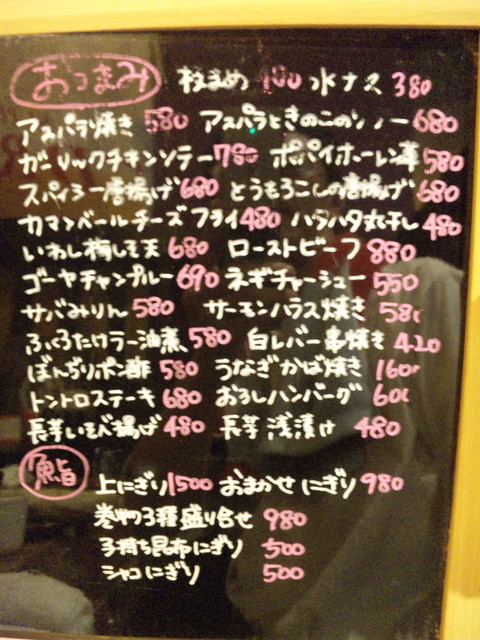 おつまみ 枝まめ 400 水ナス 380
アスパラ焼き 580 アスパラときのこのソテー 680
ガーリックチキンソテー 780 ポパイホーレン草 580
スパイシー唐揚げ 680 とうもろこしの唐揚げ 680
カマンベールチーズフライ 480 ハタハタ丸干し 480
いわし梅しそ天 680 ローストビーフ 880
ゴーヤチャンプルー 690 ネギチャーシュー 550
サバみりん 580 サーモンハラス焼き 580
ふくろたけラー油煮 580 白レバー串焼き 420
ぼんぢりポン酢 580 うなぎかば焼き 1600
トントロステーキ 680 おろしハンバーグ 600
長芋いそべ揚げ 480 長芋浅漬け 480
鮨
上にぎり 1500 おまかせにぎり 980
巻物3種盛り合せ 980
子持ち昆布にぎり 500
シャコにぎり 500